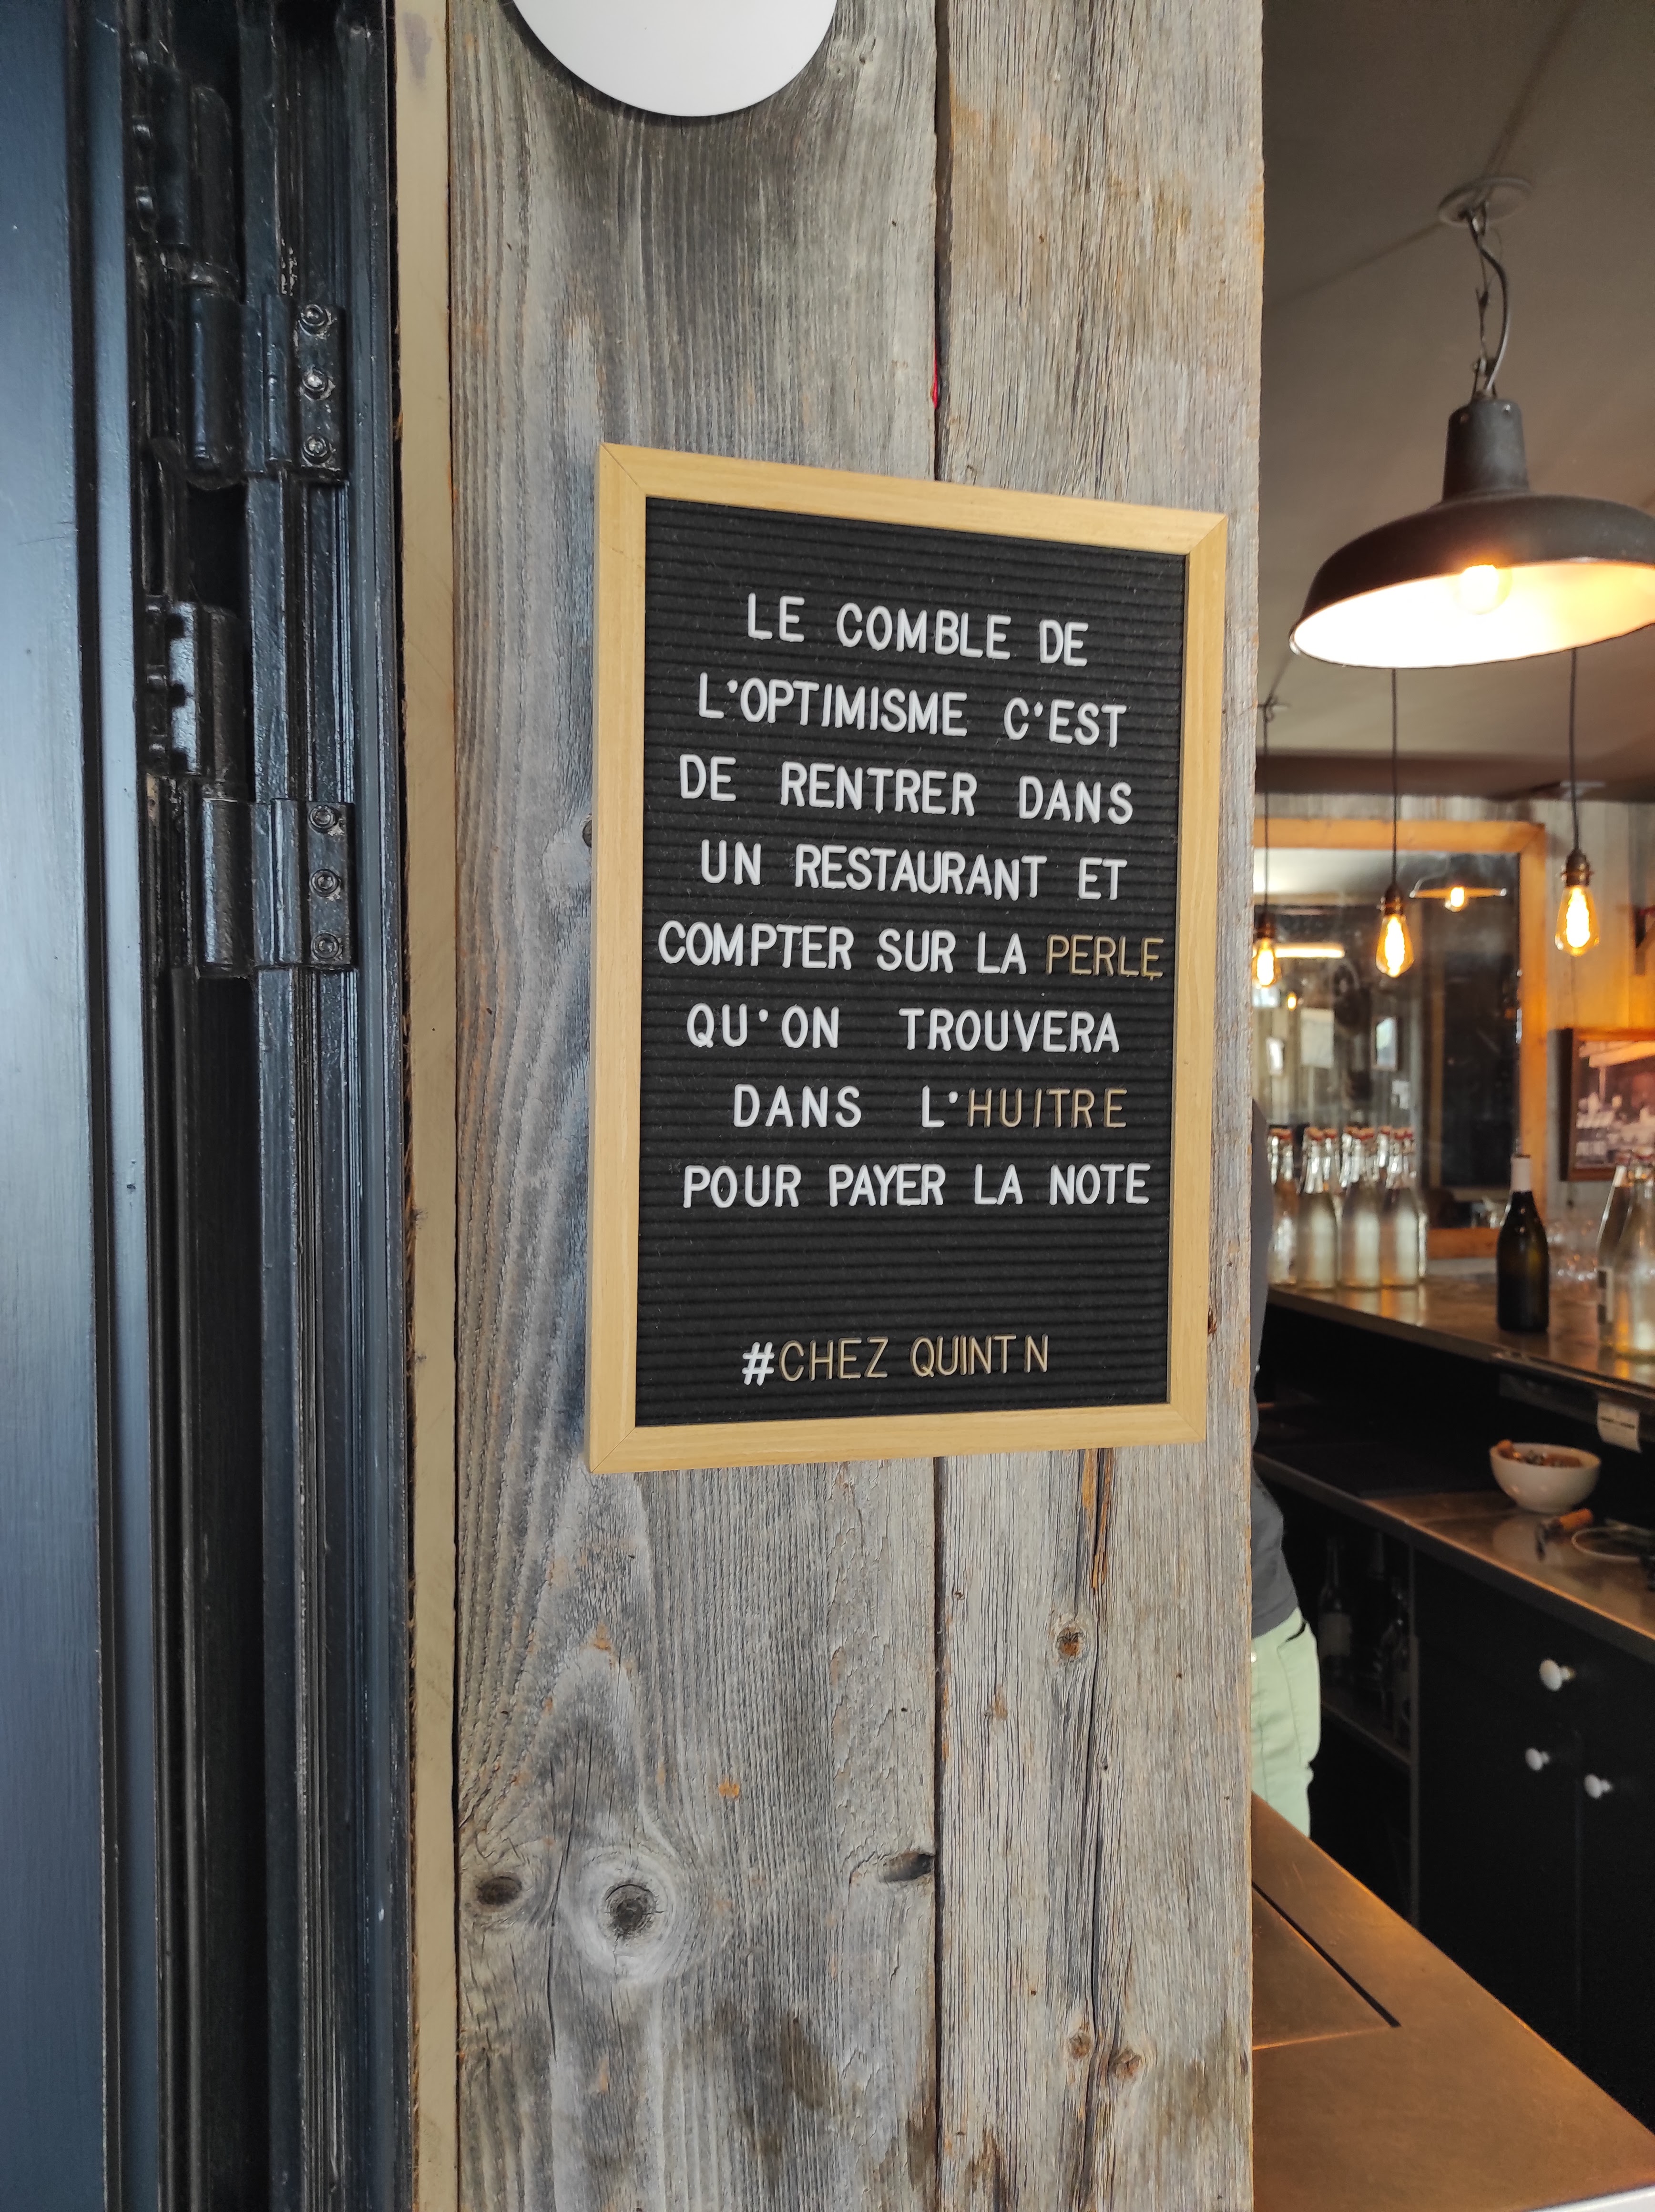 LE COMBLE DE
L'OPTIMISME C'EST
DE RENTRER DANS
UN RESTAURANT ET
COMPTER SUR LA PERLE
QU'ON TROUVERA
DANS L'HUITRE
POUR PAYER LA NOTE
#CHEZ QUINT N